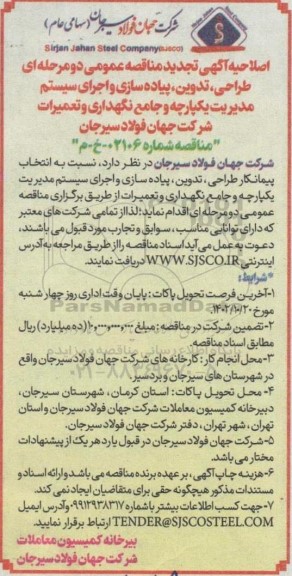 شرکت جهان فولاد سیرجان (سهامی عام)
Sirjan Jahan Steel Company (SJSCO)
اصلاحیه آگهی تجدید مناقصه عمومی دو مرحله ای
طراحی، تدوین، پیاده سازی و اجرای سیستم
مدیریت یکپارچه و جامع نگهداری و تعمیرات
شرکت جهان فولاد سیرجان
"مناقصه شماره ۰۲۱۰۶-خ-م"
شرکت جهان فولاد سیرجان در نظر دارد، نسبت به انتخاب
پیمانکار طراحی، تدوین، پیاده سازی و اجرای سیستم مدیریت
یکپارچه و جامع نگهداری و تعمیرات از طریق برگزاری مناقصه
عمومی دو مرحله ای اقدام نماید؛ لذا از تمامی شرکت های معتبر
که دارای توانایی مناسب، سوابق و تجارب مورد قبول می باشند،
دعوت به عمل می آید اسناد مناقصه را از طریق مراجعه به آدرس
اینترنتی WWW.SJSCO.IR دریافت نمایند.
*شرایط:
۱-آخرین فرصت تحویل پاکات: پایان وقت اداری روز چهارشنبه
مورخ ۱۴۰۲/۱۰/۲۰
۲-تضمین شرکت در مناقصه: مبلغ ۱۰,۰۰۰,۰۰۰,۰۰۰ (ده میلیارد) ریال
مطابق اسناد مناقصه.
۳-محل انجام کار: کارخانه های شرکت جهان فولاد سیرجان واقع
در شهرستان های سیرجان و بردسیر.
۴- محل تحویل پاکات: استان کرمان، شهرستان سیرجان،
دبیرخانه کمیسیون معاملات شرکت جهان فولاد سیرجان و استان
تهران، شهر تهران، دفتر شرکت جهان فولاد سیرجان.
۵-شرکت جهان فولاد سیرجان در قبول یا رد هر یک از پیشنهادات
مختار می باشد.
۶-هزینه چاپ آگهی، بر عهده برنده مناقصه می باشد و ارائه اسناد و
مستندات مذکور هیچگونه حقی برای متقاضیان ایجاد نمی کند.
۷-جهت کسب اطلاعات بیشتر با شماره ۰۹۹۱۲۹۳۸۳۱۷ و آدرس ایمیل
TENDER@SJSCOSTEEL.COM ارتباط برقرار نمایید.
دبیرخانه کمیسیون معاملات
شرکت جهان فولاد سیرجان